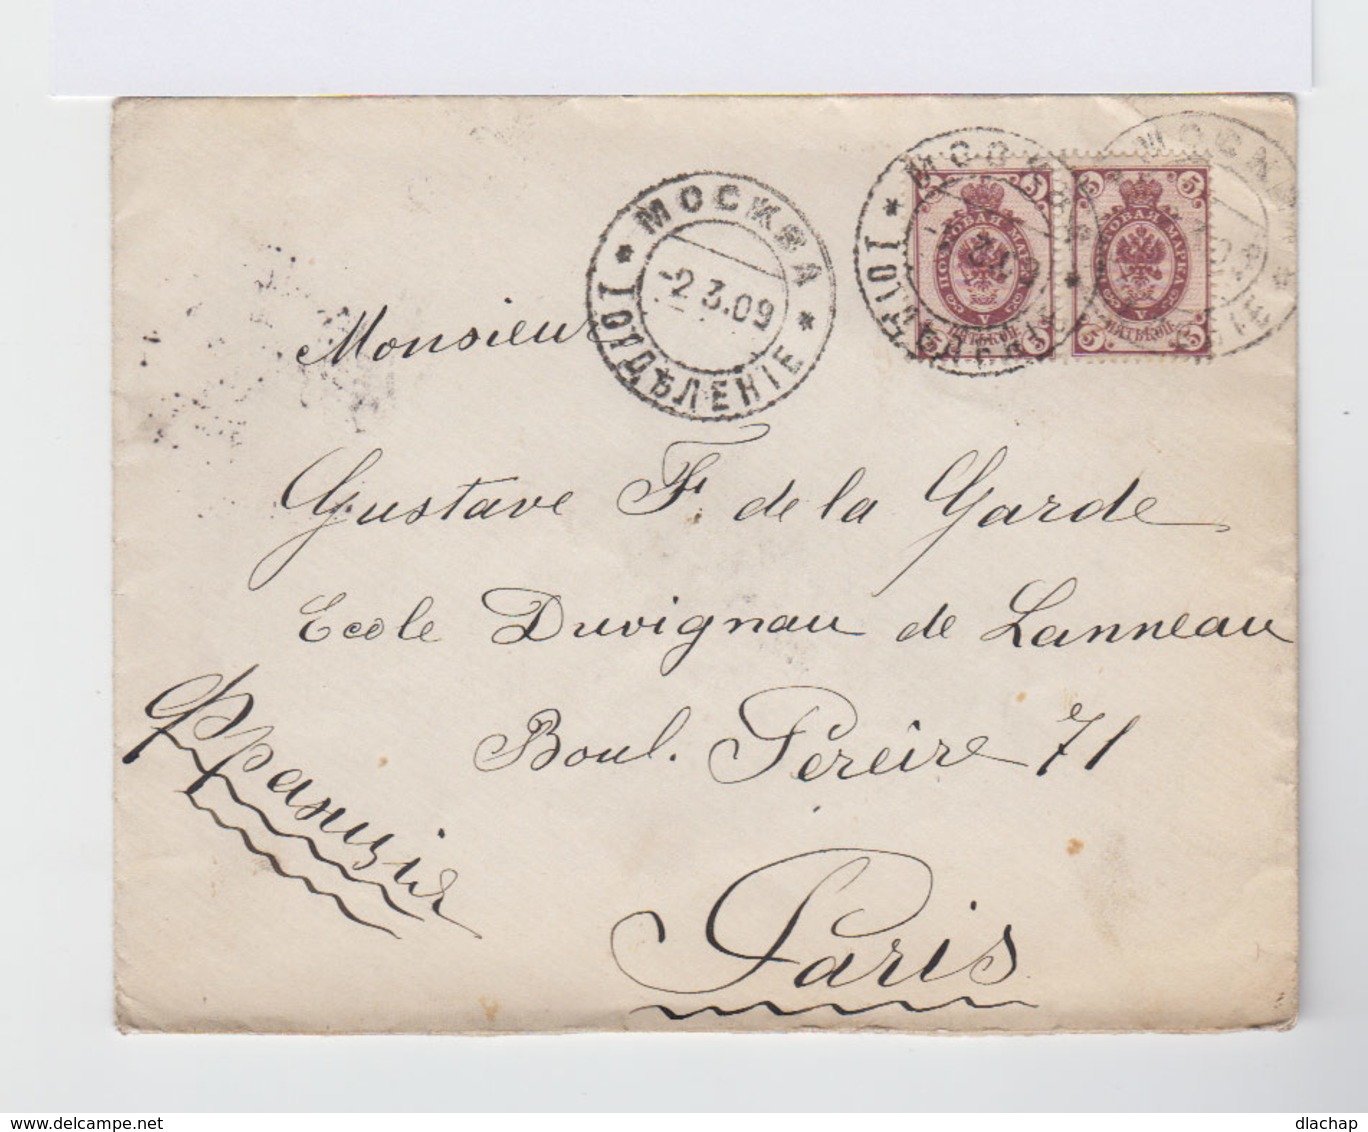 МОСКВА
-2.3.09
I ОТДѢЛЕНІЕ
МОСКВА
МОСКВА
5 5
ПОЧТОВАЯ МАРКА
V
5 ПЯТЬ КОП. 5
5 5
ПОЧТОВАЯ МАРКА
V
5 ПЯТЬ КОП. 5
Monsieur
Gustave F. de la Garde
Ecole Duvignau de Lanneau
Boul. Péreire 71
Paris
Франція
delcampe.net
dlachap